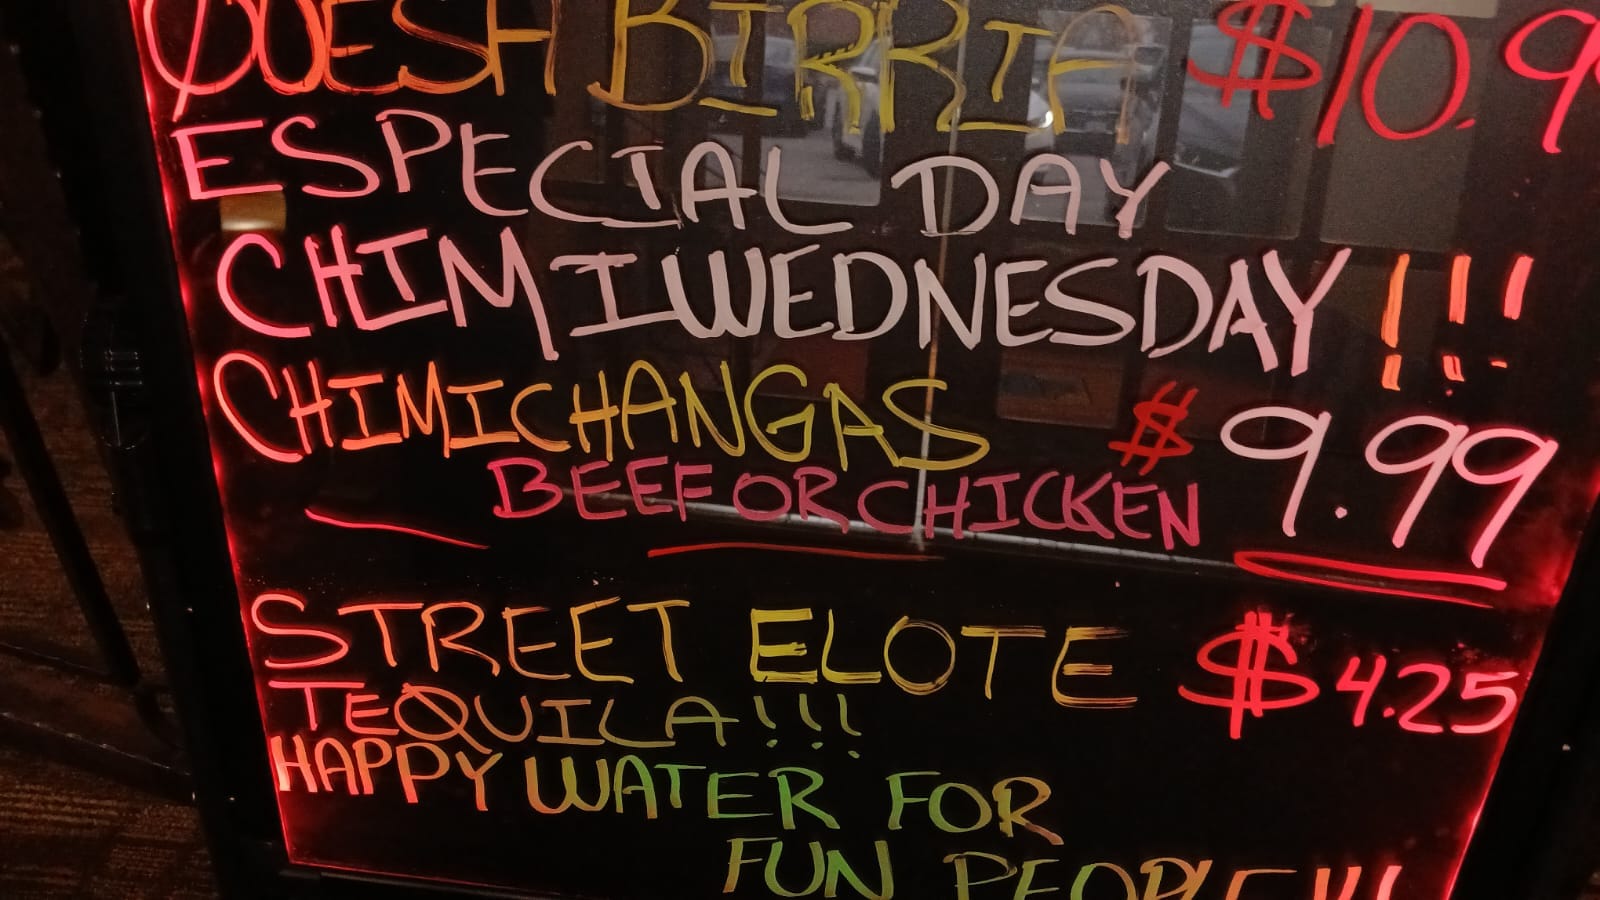 QUESA BIRRIA $10.9
ESPECIAL DAY
CHIMIWEDNESDAY!!!
CHIMICHANGAS $9.99
BEEF OR CHICKEN
STREET ELOTE $4.25
TEQUILA!!!
HAPPY WATER FOR
FUN PEOPLE!!!